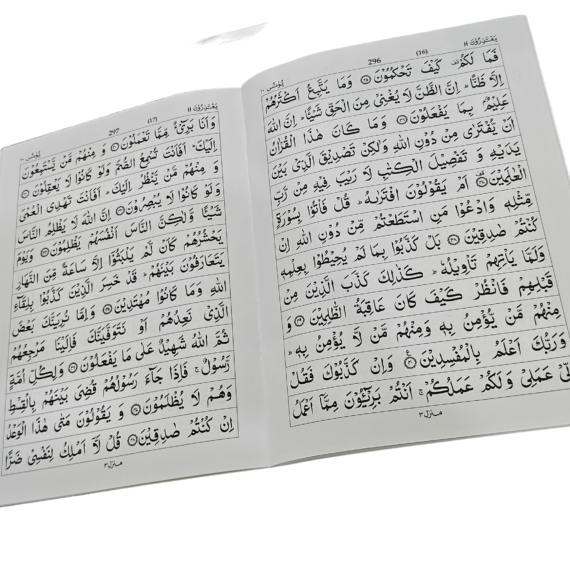 یَعْتَذِرُوْنَ ١١
296
(16)
یُوْنُس ١٠
فَمَا لَكُمْ كَیْفَ تَحْكُمُوْنَ ﴿٣٥﴾ وَمَا یَتَّبِعُ اَكْثَرُهُمْ
اِلَّا ظَنًّا ؕ اِنَّ الظَّنَّ لَا یُغْنِیْ مِنَ الْحَقِّ شَیْئًا ؕ اِنَّ اللّٰهَ
عَلِیْمٌۢ بِمَا یَفْعَلُوْنَ ﴿٣٦﴾ وَمَا كَانَ هٰذَا الْقُرْاٰنُ
اَنْ یُّفْتَرٰی مِنْ دُوْنِ اللّٰهِ وَلٰكِنْ تَصْدِیْقَ الَّذِیْ بَیْنَ
یَدَیْهِ وَ تَفْصِیْلَ الْكِتٰبِ لَا رَیْبَ فِیْهِ مِنْ رَّبِّ
الْعٰلَمِیْنَ ﴿٣٧﴾ اَمْ یَقُوْلُوْنَ افْتَرٰىهُ ؕ قُلْ فَاْتُوْا بِسُوْرَةٍ
مِّثْلِهٖ وَادْعُوْا مَنِ اسْتَطَعْتُمْ مِّنْ دُوْنِ اللّٰهِ اِنْ
كُنْتُمْ صٰدِقِیْنَ ﴿٣٨﴾ بَلْ كَذَّبُوْا بِمَا لَمْ یُحِیْطُوْا بِعِلْمِهٖ
وَلَمَّا یَاْتِهِمْ تَاْوِیْلُهٗ ؕ كَذٰلِكَ كَذَّبَ الَّذِیْنَ مِنْ
قَبْلِهِمْ فَانْظُرْ كَیْفَ كَانَ عَاقِبَةُ الظّٰلِمِیْنَ ﴿٣٩﴾ وَ
مِنْهُمْ مَّنْ یُّؤْمِنُ بِهٖ وَمِنْهُمْ مَّنْ لَّا یُؤْمِنُ بِهٖ ؕ
وَرَبُّكَ اَعْلَمُ بِالْمُفْسِدِیْنَ ﴿٤٠﴾ وَاِنْ كَذَّبُوْكَ فَقُلْ
لِّیْ عَمَلِیْ وَلَكُمْ عَمَلُكُمْ ۚ اَنْتُمْ بَرِیْٓئُوْنَ مِمَّاۤ اَعْمَلُ
منزل ٣
یَعْتَذِرُوْنَ ١١
(17)
297
یُوْنُس ١٠
وَاَنَا بَرِیْٓءٌ مِّمَّا تَعْمَلُوْنَ ﴿٤١﴾ وَ مِنْهُمْ مَّنْ یَّسْتَمِعُوْنَ
اِلَیْكَ ؕ اَفَاَنْتَ تُسْمِعُ الصُّمَّ وَلَوْ كَانُوْا لَا یَعْقِلُوْنَ ﴿٤٢﴾
وَ مِنْهُمْ مَّنْ یَّنْظُرُ اِلَیْكَ ؕ اَفَاَنْتَ تَهْدِی الْعُمْیَ
وَلَوْ كَانُوْا لَا یُبْصِرُوْنَ ﴿٤٣﴾ اِنَّ اللّٰهَ لَا یَظْلِمُ النَّاسَ
شَیْئًا وَّلٰكِنَّ النَّاسَ اَنْفُسَهُمْ یَظْلِمُوْنَ ﴿٤٤﴾ وَیَوْمَ
یَحْشُرُهُمْ كَاَنْ لَّمْ یَلْبَثُوْۤا اِلَّا سَاعَةً مِّنَ النَّهَارِ
یَتَعَارَفُوْنَ بَیْنَهُمْ ؕ قَدْ خَسِرَ الَّذِیْنَ كَذَّبُوْا بِلِقَآءِ
اللّٰهِ وَمَا كَانُوْا مُهْتَدِیْنَ ﴿٤٥﴾ وَاِمَّا نُرِیَنَّكَ بَعْضَ
الَّذِیْ نَعِدُهُمْ اَوْ نَتَوَفَّیَنَّكَ فَاِلَیْنَا مَرْجِعُهُمْ
ثُمَّ اللّٰهُ شَهِیْدٌ عَلٰی مَا یَفْعَلُوْنَ ﴿٤٦﴾ وَلِكُلِّ اُمَّةٍ
رَّسُوْلٌ ۚ فَاِذَا جَآءَ رَسُوْلُهُمْ قُضِیَ بَیْنَهُمْ بِالْقِسْطِ
وَهُمْ لَا یُظْلَمُوْنَ ﴿٤٧﴾ وَ یَقُوْلُوْنَ مَتٰی هٰذَا الْوَعْدُ
اِنْ كُنْتُمْ صٰدِقِیْنَ ﴿٤٨﴾ قُلْ لَّاۤ اَمْلِكُ لِنَفْسِیْ ضَرًّا
منزل ٣